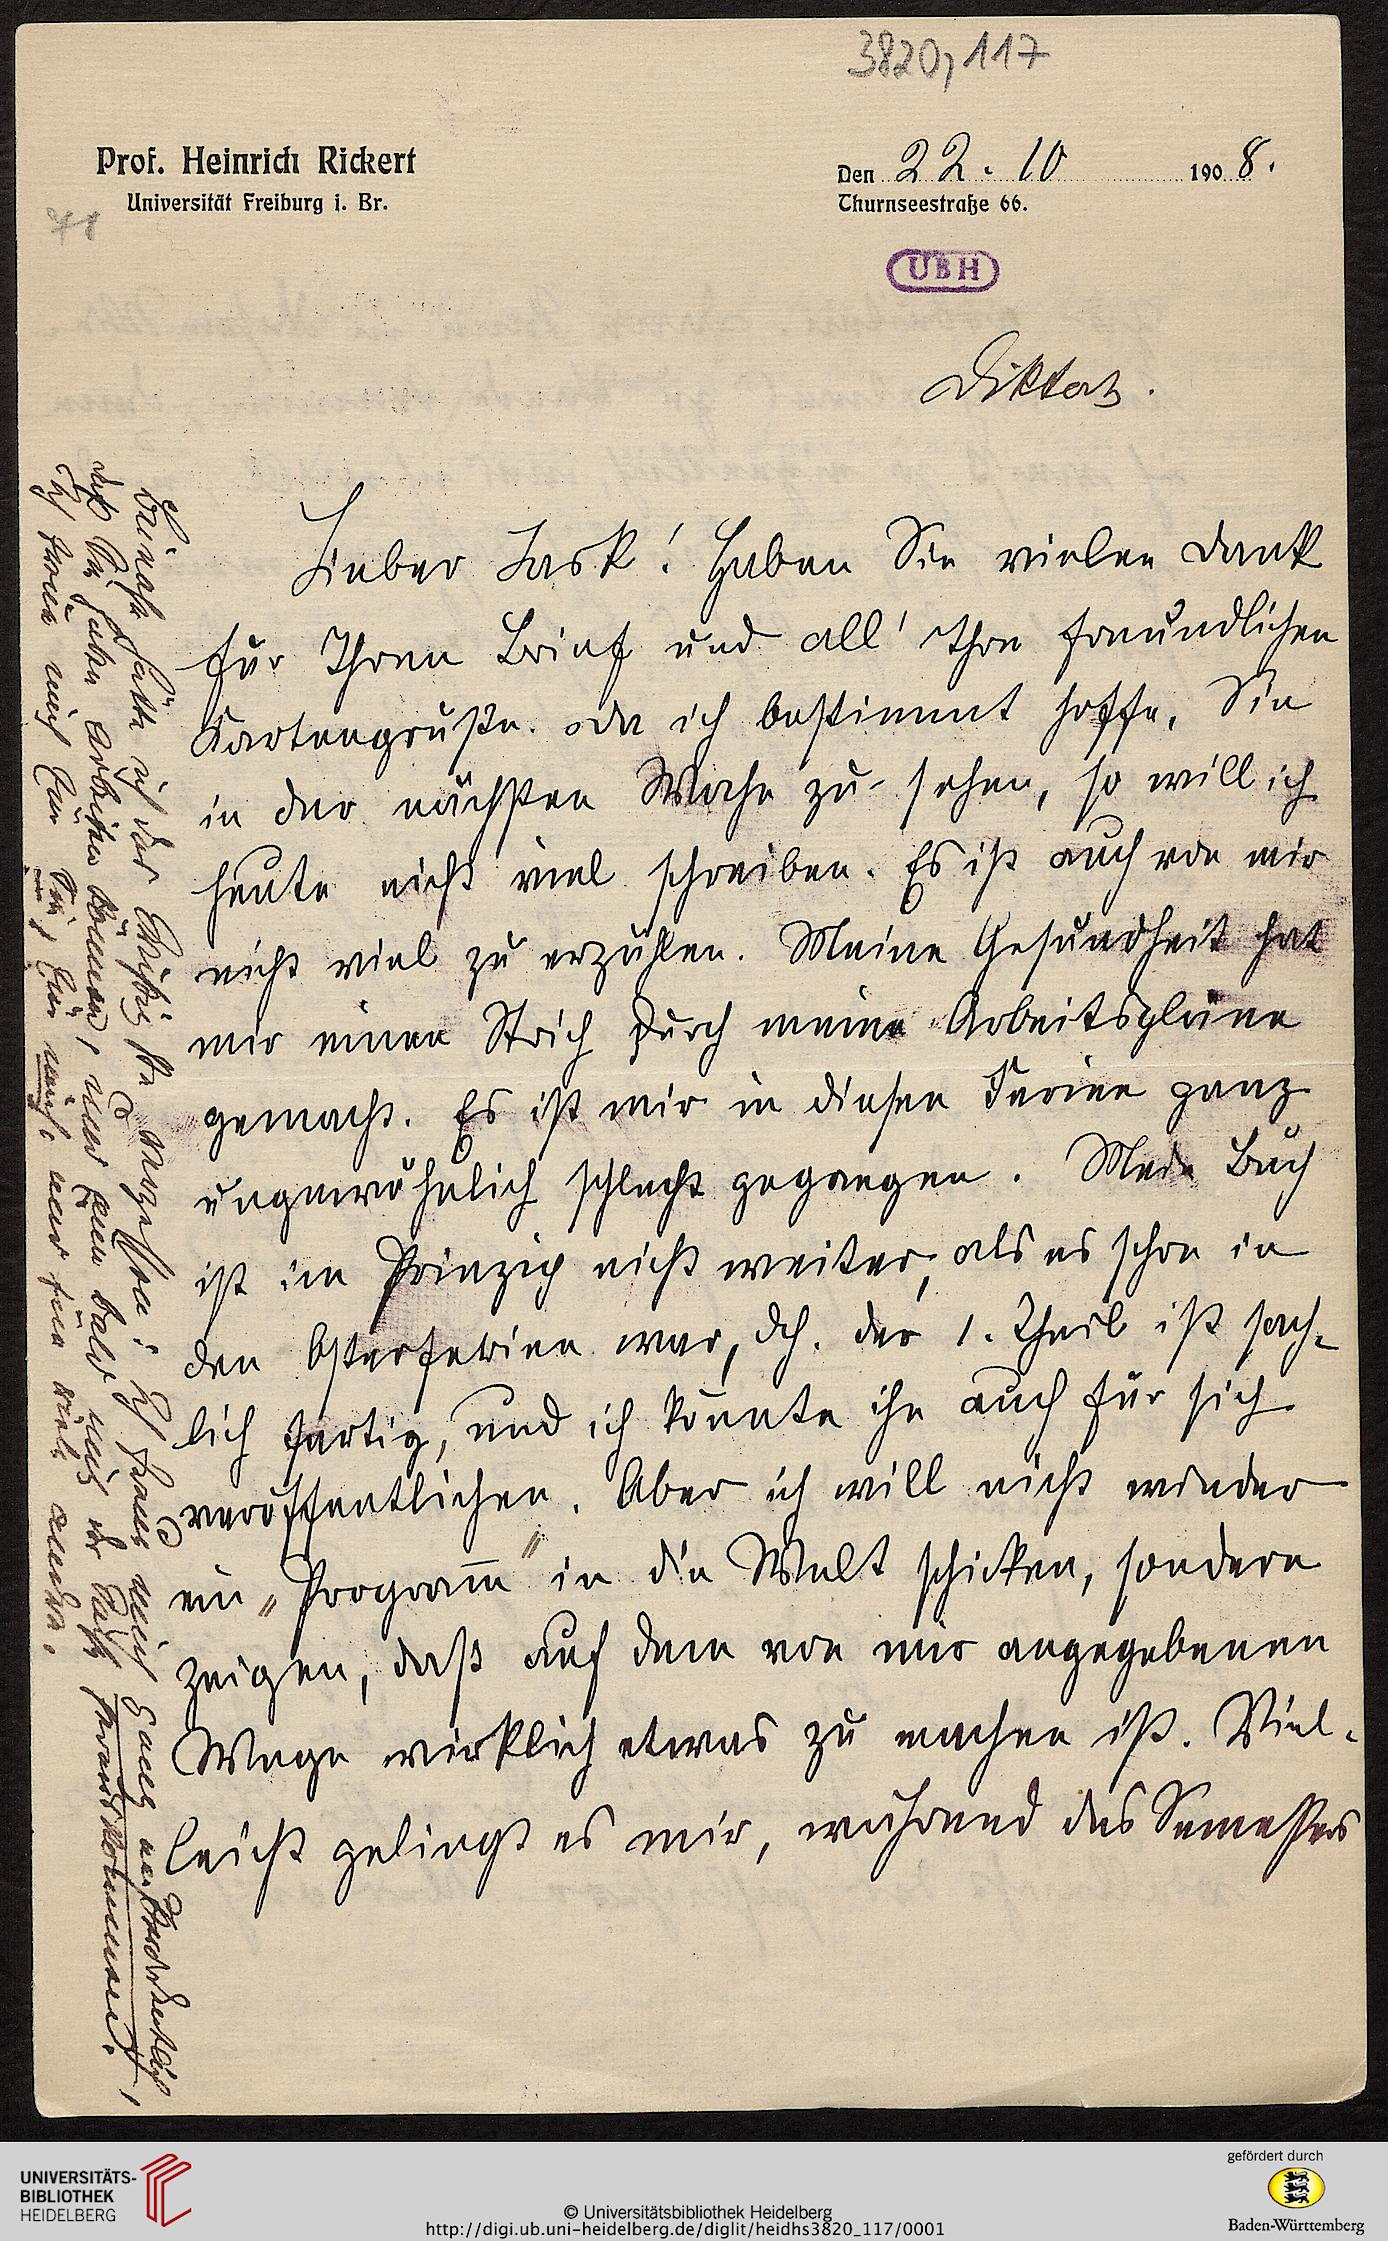 3820,117
Prof. Heinrich Rickert
Universität Freiburg i. Br.
71
Den 22. 10 1908.
Thurnseestraße 66.
UBH
Diktat.
Lieber Lask! Haben Sie vielen Dank
für Ihren Brief und all' Ihre freundlichen
Kartengrüße. Da ich bestimmt hoffe, Sie
in der nächsten Woche zu sehen, so will ich
heute nicht viel schreiben. Es ist auch von mir
nicht viel zu erzählen. Meine Gesundheit hat
mir einen Strich durch meine Arbeitspläne
gemacht. Es ist mir in diesen Ferien ganz
ungewöhnlich schlecht gegangen. Mein Buch
ist im Prinzip nicht weiter, als es schon in
den Osterferien war, dh. der 1. Theil ist sach-
lich fertig, und ich könnte ihn auch für sich
veröffentlichen. Aber ich will nicht wieder
ein „Programm" in die Welt schicken, sondern
zeigen, daß auf dem von mir angegebenen
Wege wirklich etwas zu machen ist. Viel-
leicht gelingt es mir, während des Semesters
Beinahe hätte ich das Wichtigste vergessen: Ich freue mich ganz außerordentlich,
daß Sie haben arbeiten können, und nun bald mit der Logik herauskommen.
Ich freue mich für Sie, für mich, und für viele andere.
UNIVERSITÄTS-
BIBLIOTHEK
HEIDELBERG
© Universitätsbibliothek Heidelberg
http://digi.ub.uni-heidelberg.de/diglit/heidhs3820_117/0001
gefördert durch
Baden-Württemberg